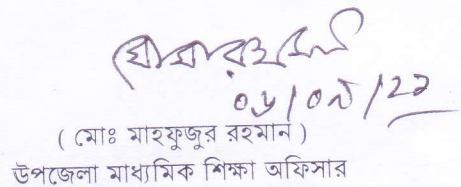 ০৬/০৯/২২
( মোঃ মাহফুজুর রহমান )
উপজেলা মাধ্যমিক শিক্ষা অফিসার